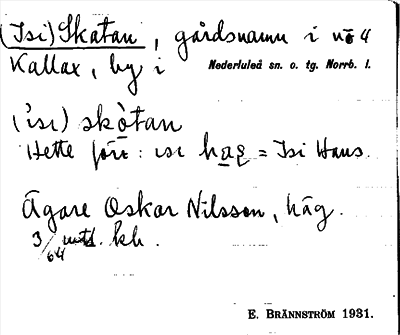 (Isi) Skatan, gårdsnamn i nō 4
Kallax, by i Nederluleå sn. o. tg. Norrb. l.
(ısı) skòtan
Hette förr: ısı haş = Isi Hans.
Ägare Oskar Nilsson, häg.
3/64 mtd. kh.
E. BRÄNNSTRÖM 1931.